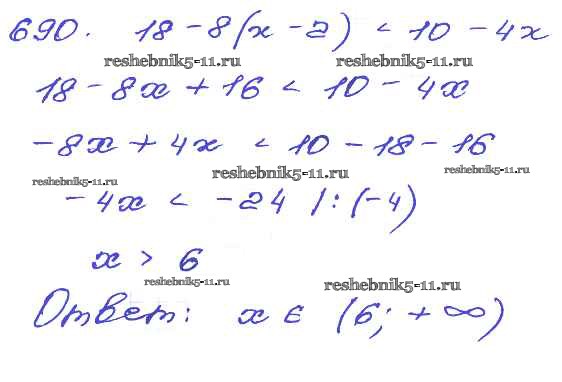 690. 18 - 8(x - 2) < 10 - 4x
reshebnik5-11.ru reshebnik5-11.ru
18 - 8x + 16 < 10 - 4x
-8x + 4x < 10 - 18 - 16
reshebnik5-11.ru reshebnik5-11.ru reshebnik5-11.ru
-4x < -24 /:(-4)
x > 6
reshebnik5-11.ru reshebnik5-11.ru
Ответ: x ∈ (6; +∞)